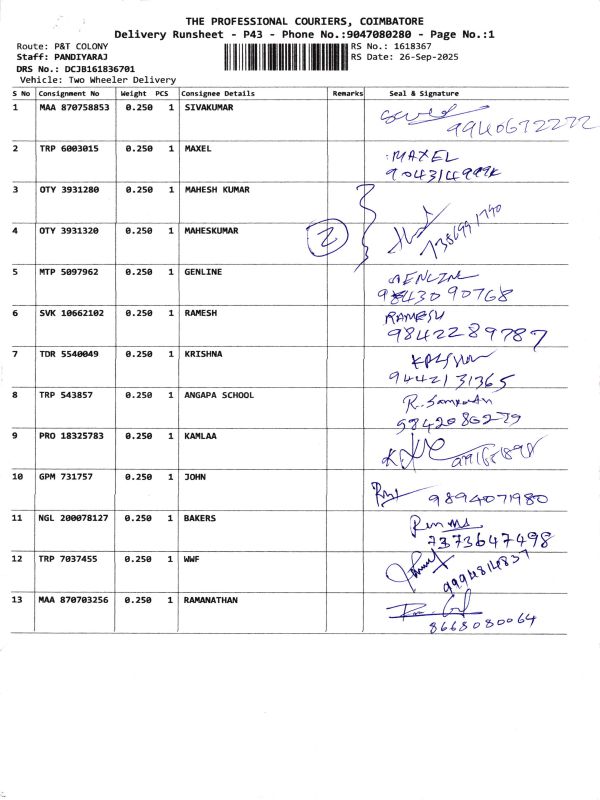 THE PROFESSIONAL COURIERS, COIMBATORE
Delivery Runsheet - P43 - Phone No.:9047080280 - Page No.:1
Route: P&T COLONY RS No.: 1618367
Staff: PANDIYARAJ RS Date: 26-Sep-2025
DRS No.: DCJB161836701
Vehicle: Two Wheeler Delivery
S No Consignment No Weight PCS Consignee Details Remarks Seal & Signature
1 MAA 870758853 0.250 1 SIVAKUMAR
2 TRP 6003015 0.250 1 MAXEL MAXEL
3 OTY 3931280 0.250 1 MAHESH KUMAR
4 OTY 3931320 0.250 1 MAHESKUMAR 2
5 MTP 5097962 0.250 1 GENLINE GENLINE
9843090768
6 SVK 10662102 0.250 1 RAMESH RAMESH
9842289787
7 TDR 5540049 0.250 1 KRISHNA
9442131365
8 TRP 543857 0.250 1 ANGAPA SCHOOL
9 PRO 18325783 0.250 1 KAMLAA
10 GPM 731757 0.250 1 JOHN 9894071980
11 NGL 200078127 0.250 1 BAKERS
7373647498
12 TRP 7037455 0.250 1 WWF
9994814837
13 MAA 870703256 0.250 1 RAMANATHAN
8668080064